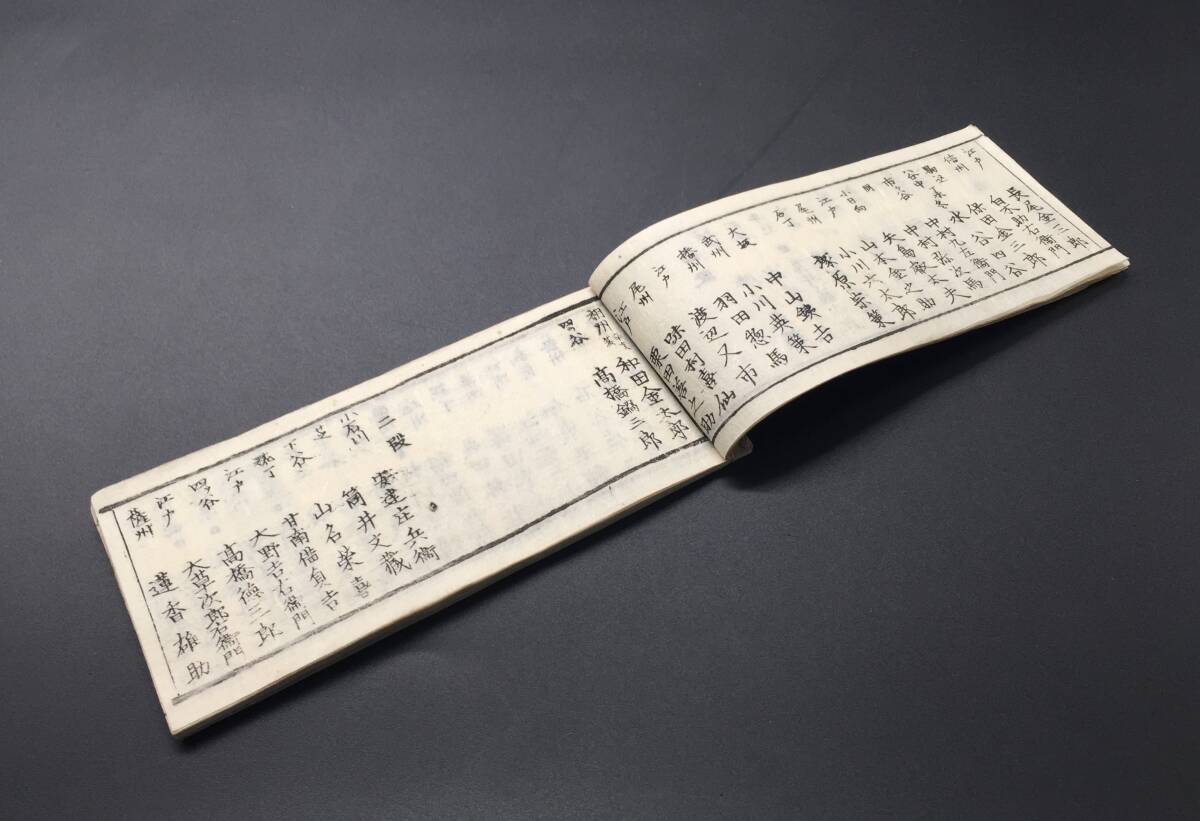 江戸 長尾金三郎
信州 白木助右衛門
駒込 保田金三郎
谷中 水谷四谷
市ヶ谷 中村九左衛門
中村弥次馬
矢島敬太夫
小日向 山本金之助
江戸 小川六太郎
尾州 塚原宗策
石丁 中山鉄吉
大坂 小川英策
武州 羽田惣馬
播州 渡辺又市
江戸 味田村喜仙
尾州 栗田善之助
江戸 和田金太郎
四ツ谷 高橋錦三郎
二段
小石川 安達庄兵衛
芝 筒井文蔵
下谷 山名栄喜
甘南備貞吉
江戸 大野吉右衛門
四ツ谷 高橋徳三郎
江戸 大草次郎右衛門
薩州 蓮香雄助